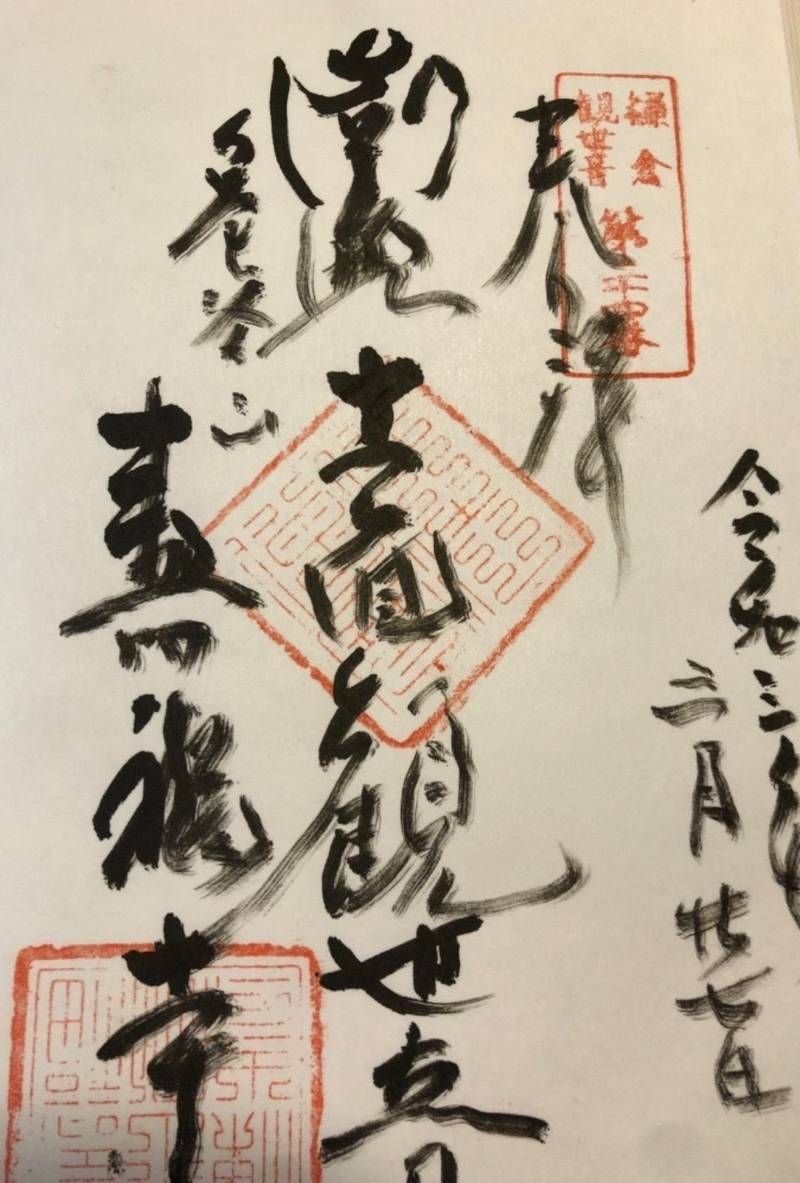 鎌倉
観世音
第二十四番
奉拝
令和三年
月廿七日
南無十一面観世音
亀谷山
壽福寺